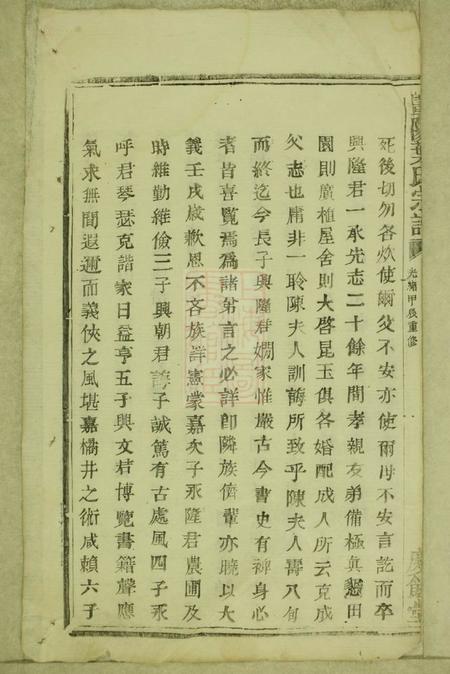 氏宗譜
光緒甲辰重修
死後切勿各炊使爾父不安亦使爾母不安言訖而卒
興隆君一承先志二十餘年間孝親友弟備極真懇田
園則廣植屋舍則大啓昆玉俱各婚配成人所云克成
父志也庸非一聆陳夫人訓誨所致乎陳夫人壽八旬
而終迄今長子興隆君嫺家惟嚴古今書史有裨身心
者皆喜覽焉為諸弟言之必詳即隣族儕輩亦曉以大
義壬戌歲歉恩不吝族詳憲蒙嘉次子永隆君農圃及
時維勤維儉三子興朝君諱子誠篤有古處風四子永
呼君琴瑟克諧家日益亨五子興文君博覽書籍聲應
氣求無間遐邇而義俠之風堪嘉橘井之術咸賴六子